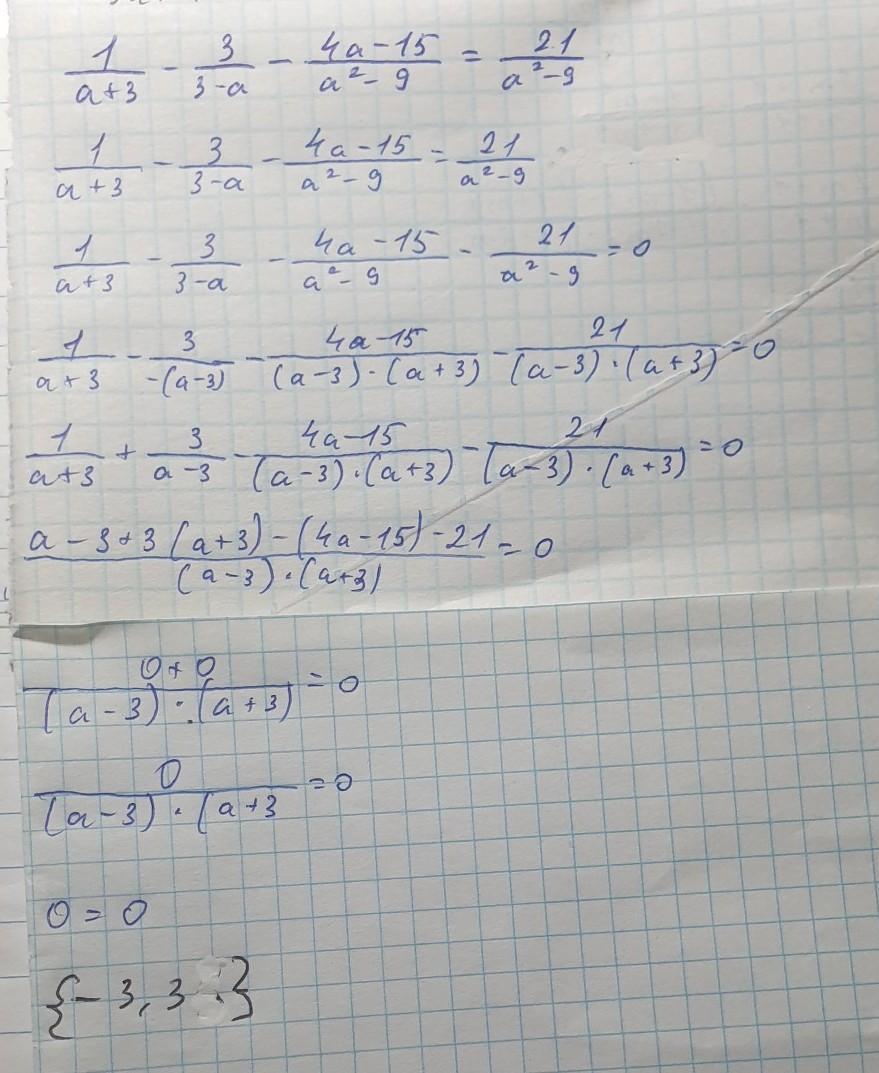 1/(a+3) - 3/(3-a) - (4a-15)/(a²-9) = 21/(a²-9)
1/(a+3) - 3/(3-a) - (4a-15)/(a²-9) = 21/(a²-9)
1/(a+3) - 3/(3-a) - (4a-15)/(a²-9) - 21/(a²-9) = 0
1/(a+3) - 3/(-(a-3)) - (4a-15)/((a-3)·(a+3)) - 21/((a-3)·(a+3)) = 0
1/(a+3) + 3/(a-3) - (4a-15)/((a-3)·(a+3)) - 21/((a-3)·(a+3)) = 0
(a-3+3(a+3)-(4a-15)-21)/((a-3)·(a+3)) = 0
(0+0)/((a-3)·(a+3)) = 0
0/((a-3)·(a+3) = 0
0 = 0
{-3, 3}